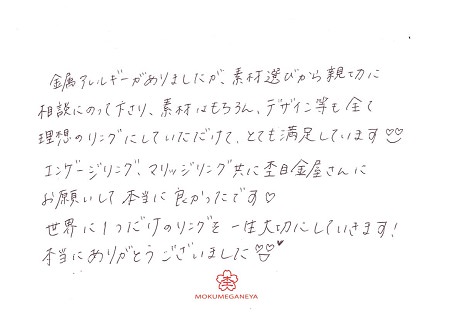 金属アレルギーがありましたが、素材選びから親切に
相談にのって下さり、素材はもちろん、デザイン等も全て
理想のリングにしていただけて、とても満足しています
エンゲージリング、マリッジリング共に杢目金屋さんに
お願いして本当に良かったです♡
世界に1つだけのリングを一生大切にしていきます!
本当にありがとうございました♥
MOKUMEGANEYA